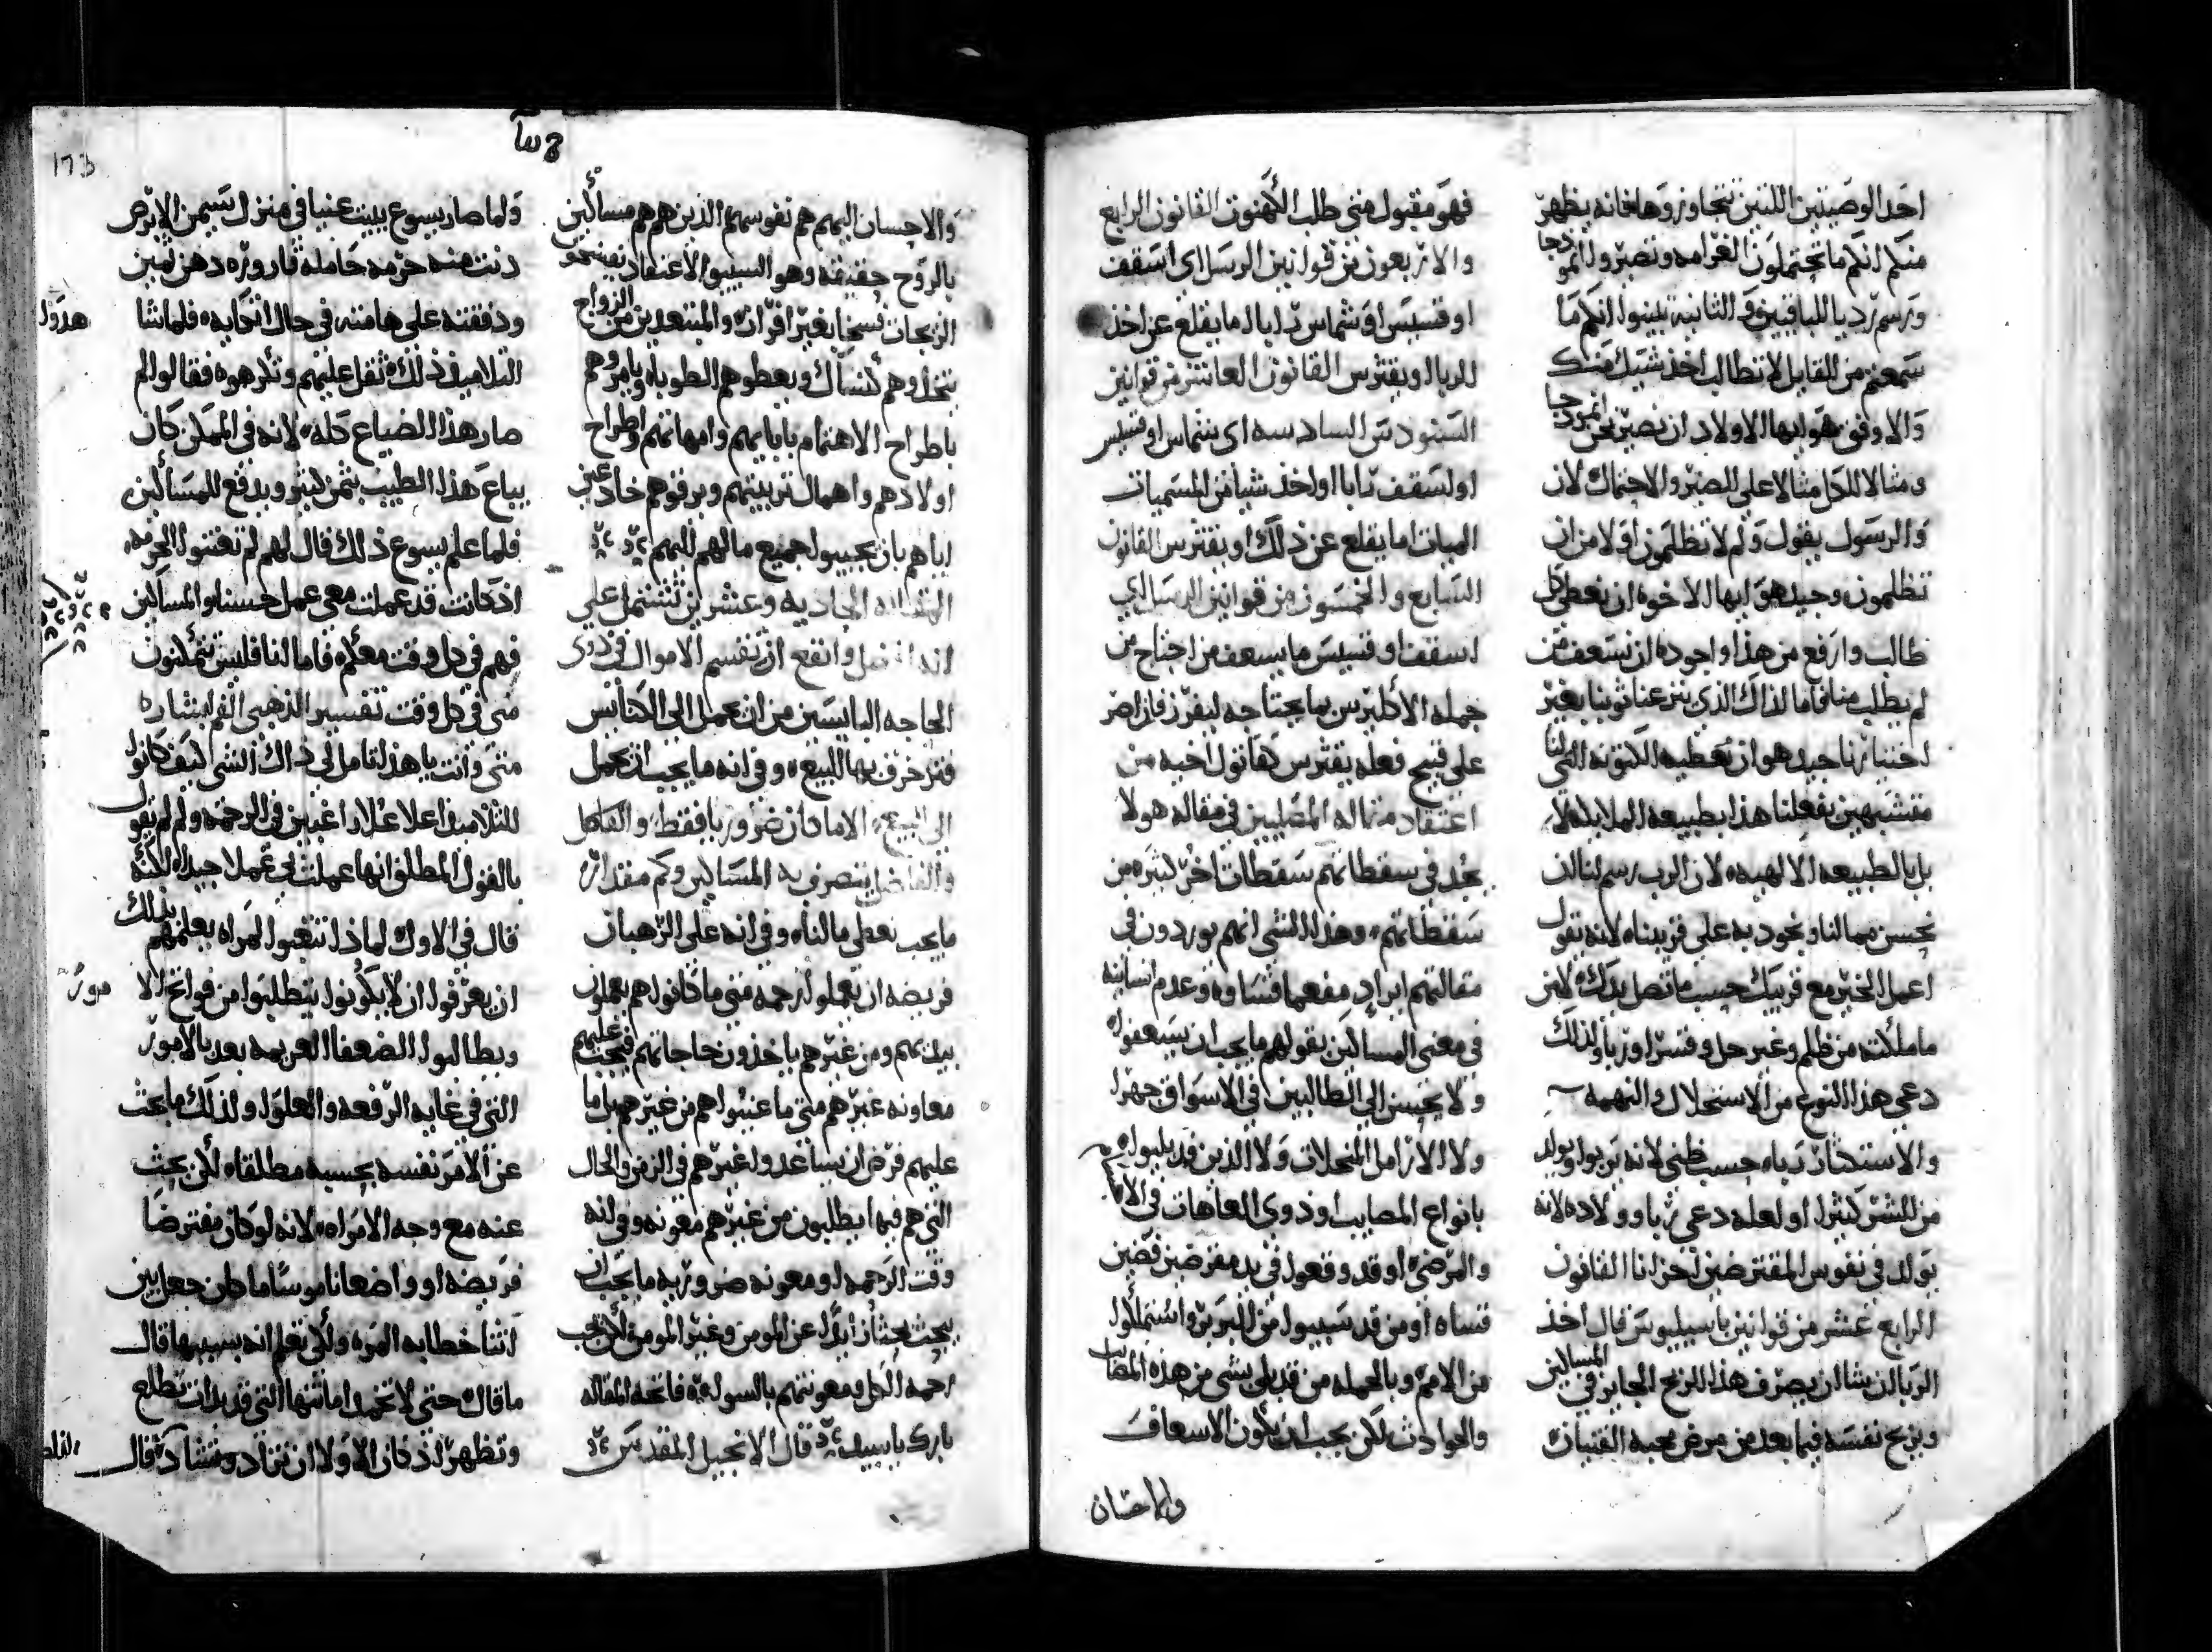 احد الوصيتين اللتين تتجاوزوها فانه يظهر
منكم انكم ما تحتملون الغرامه وتصيروا انموذجا
ورسم رديا للباقيين والثانية تبينوا انكم ما
سمعتم من القايل لا تطالب اخذ شيك منك
والاوفق هو ايها الاولاد ان نصير نحن انموذجا
ومثالا للكل مثالا على الصبر والاحتمال لان
والرسول يقول ولم لا تظلمون اولا من ان
تظلمون وجيد هو ايها الاخوه ان نعطي كل
طالب وارفع من هذا واجوده ان نسعف من
لم يطلب منا فاما لذاك الذي ينزعنا ثوبنا بغير
اختيارنا جيد هو ان نعطيه الكتونه التي لنا
متشبهين بفعلنا هذا بطبيعه الملايكه لا
بل بالطبيعه الالهيه لان الرب رسم لنا ان
نحسن مما لنا ونجود به على قريبنا لانه يقول
اعمل الخير مع قريبك حسب ما تصل يدك لا من
ما ملكته من ظلم وغير حل وقسرا وربا ولذلك
دعي هذا النوع من الاستحلال والنهمه
والاستكثار رباه حسب ظني لانه يربوا ويولد
من الشر كثيرا او لعله دعي ربا وولاده لانه
يولد في نفوس المقترضين احزانا القانون
الرابع عشر من قوانين باسيليوس قال اخذ
الربا ان شا ان يصرف هذا الربح الجايز في المساكين
ويربح نفسه فيما بعد من مرض محبه القنيات
فهو مقبول متى طلب الكهنوت القانون الرابع
والاربعون من قوانين الرسل اي اسقف
او قسيس او شماس رابا اما يقلع عن اخذ
الربا او يفترس القانون العاشر من قوانين
السنودس السادسه اي شماس او قسيس
او اسقف رابا او اخذ شيا من المسميات
الميات اما يقلع عن ذلك او يفترس القانون
السابع والخمسون من قوانين الرسل اي
اسقف او قسيس ما يسعف من احتاج من
جمله الاكليرس بما يحتاجه ليفرز فان اصر
على قبيح فعله يفترس كقاتول اخيه من
اعتقاد مقاله المصليين في مقاله هولا
نجد في سقطاتهم سقطات اخر كثيره من
سقطاتهم وهذا الشي انهم يوردون في
مقالتهم ايراد مفعما قساوه وعدم انسانيه
في معنى المساكين بقولهم ما يجب ان يسعفوا
ولا يحسن الى الطالبين في الاسواق جهرا
ولا الارامل المنحلات ولا الذين قد بليوا
بانواع المصايب او ذوي العاهات في الا
والمرضى او قد وقعوا في يد مقرضين قضين
قساه او من قد سبيوا من البربر واستملوا
من الامم وبالجمله من قد بلي بشي من هذه المصايب
والحوادث لكن يجب ان يكون الاسعاف
والاحسان
١٦٣
والاحسان اليهم هم نفوسهم الذين هم هم مساكين
بالروح حقيقه وهو السيبو الاعتقاد نفيشحو
الزيجات فسخا بغير افراز والمبتعدين من الزواج
يتخذوهم كنساك ويعطوهم الطوبا ويامروهم
باطراح الاهتمام بابايهم وامهاتهم واطراح
اولادهم واهمال تربيتهم ويرقوهم خادعين
اياهم بان يجيبوا جميع ما لهم اليهم
المقاله الحاديه وعشرين تشتمل على
انه افضل وانفع ان تقسم الاموال في ذوي
الحاجه البايسين من ان تحمل الى الكنايس
فتزخرف بها البيع وفي انه ما يجب ان يحمل
الى البيع الا ما كان ضروريا فقط والفاضل
والفاضل يتصرف به المساكين وكم مقدار
ما يجب نعطي ما لنا وفي انه على الرهبان
فريضه ان يعملوا رحمه متى ما كانوا هم يعملون
بيديهم ومن غيرهم ياخذون حاجاتهم فيجب عليهم
معاونه غيرهم متى ما عنيوا هم من غيرهم بل اما
عليهم فرض ان يساعدوا غيرهم في الزمن والحال
التي هم فيها يطلبون من غيرهم معونه وفي انه
وقت الرحمه او معونه ضروريه ما يجب ان
يبحث بحثا زايدا عن المومن وغير المومن لكن تجب
رحمه الكل ومعونتهم بالسويه فاتحه المقاله
بارك يا سيد قال الانجيل المقدس
ولما صار يسوع ببيت عنيا في منزل سيمن الابرص
دنت منه حرمه حامله قاروره دهن ثمين
ودفقته على هامته في حال اتكايه فلما شا هدوا
التلاميذ ذلك ثقل عليهم وتكرهوه فقالوا لم
صار هذا الضياع كله لانه في الممكن كان
يباع هذا الطيب بثمن كثير ويدفع للمساكين
فلما علم يسوع ذلك قال لهم لم تعنتوا الحرمه
اذ كانت قد عملت معي عمل حسنا والمساكين
فهم في كل وقت معكم فاما انا فليس تملكون
مني في كل وقت تفسير الذهبي الفم لبشاره
متى وانت يا هذا تامل لي ذاك الشي كيف كانوا
التلاميذ اعلا علا راغبين في الرحمه ولم لم يقول
بالقول المطلق انها عملت بي عملا جيدا لكنه
قال في الاول لماذا تتعبوا المراه يعلمهم بذلك
ان يعرفوا ان لا يكونوا يتطلبوا من فواتح الا مور
ويطالبوا الضعفا العريمه بعد بالامور
التي في غايه الرفعه والعلو ولذلك ما يحث
عن الامر نفسه بحسبه مطلقا لكن بحث
عنه مع وجه الامراه لانه لو كان مفترضا
فريضه او واضعا ناموسا ما كان جعل بين
اثنا خطابه المره ولكي تعلم انه بسببها قال
ما قال حتى لا تخمد امانتها التي قد بدات تطلع
وتظهر اذ كان الاولا ان تزاد وتشاد قال